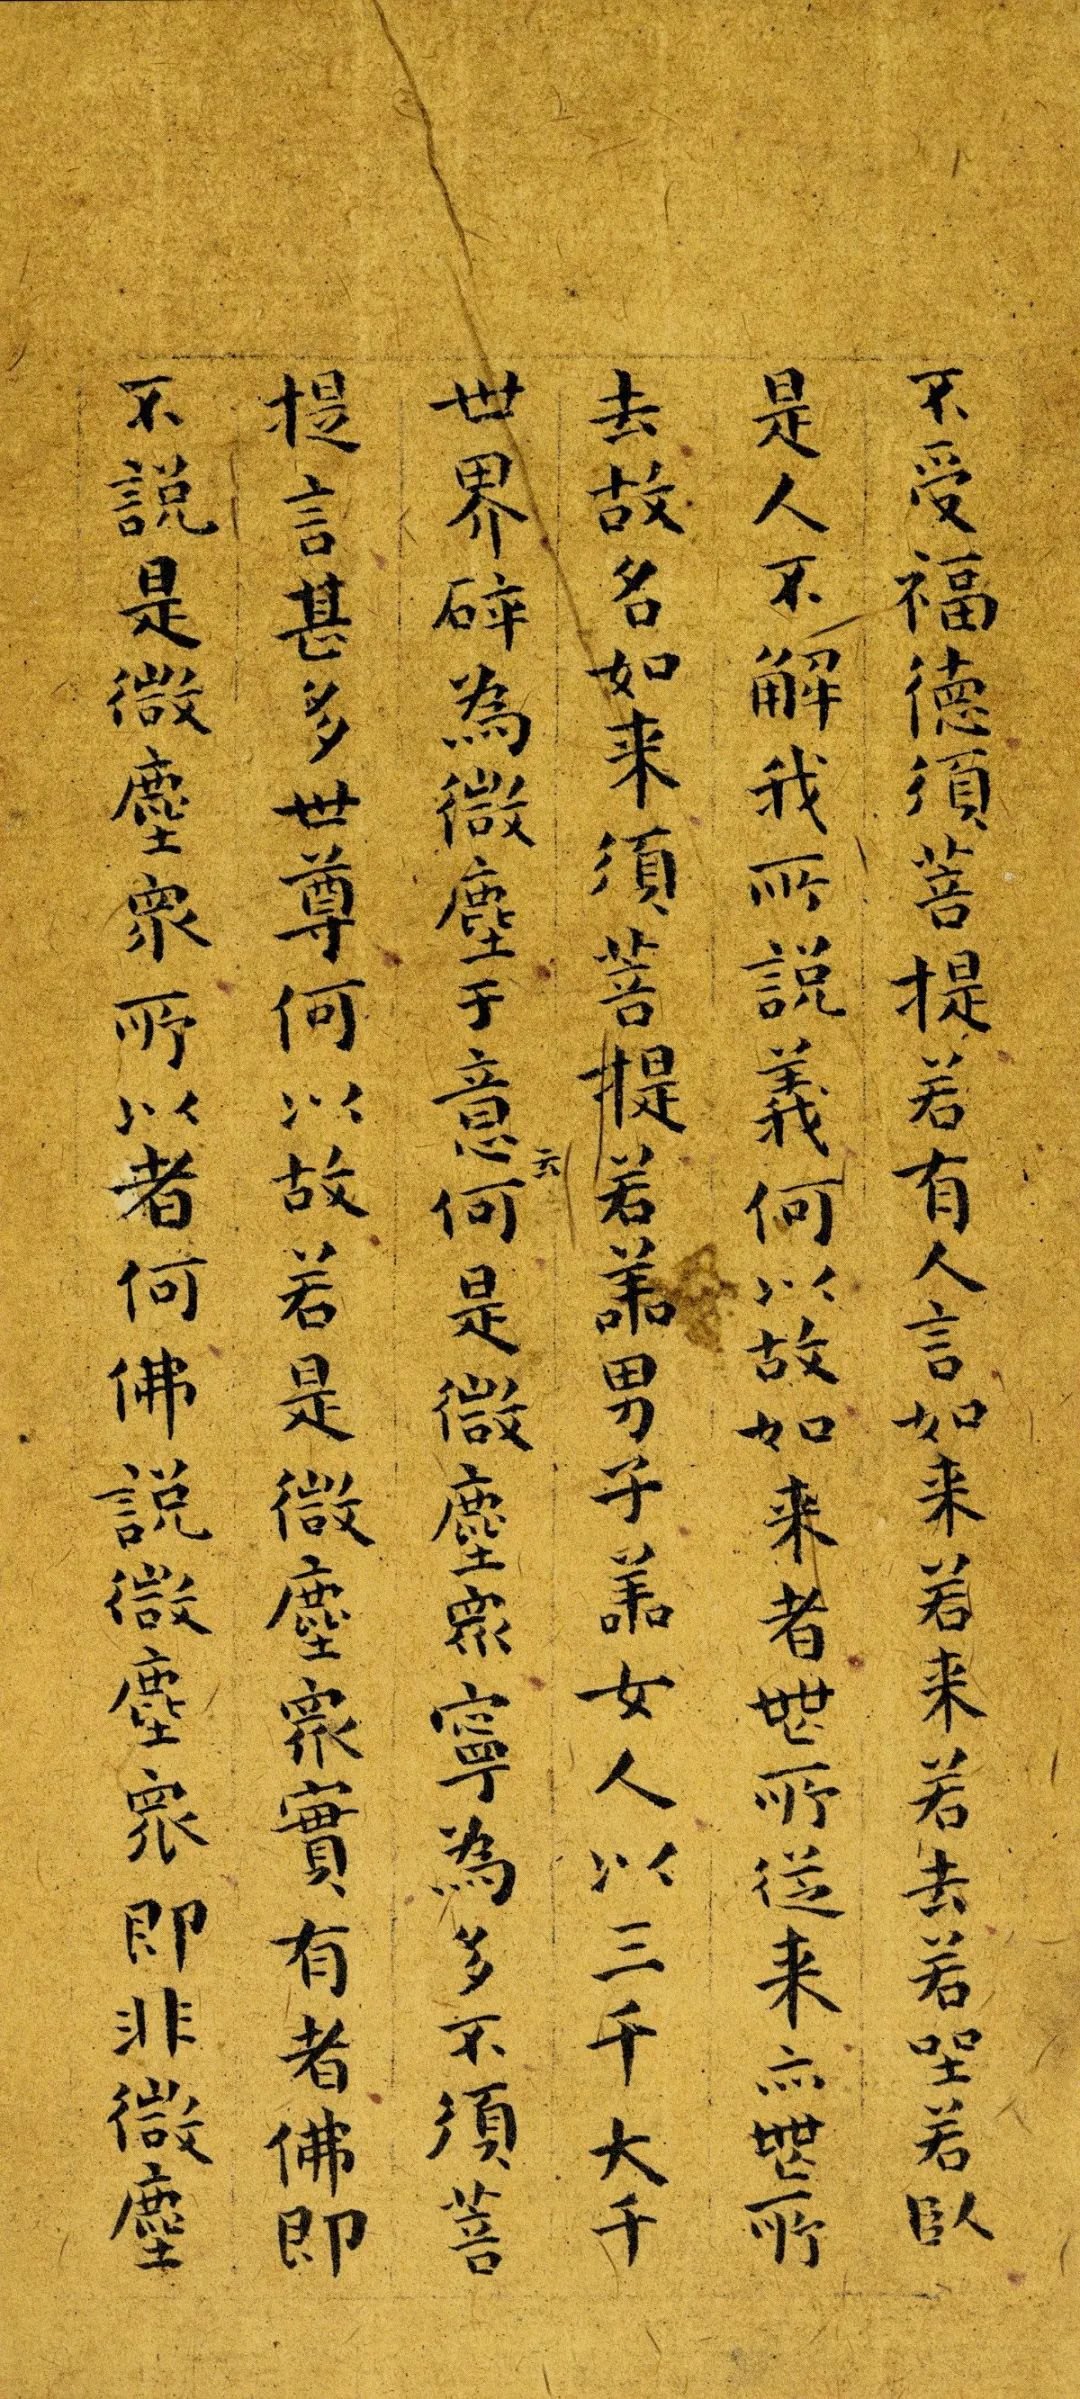 不受福德須菩提若有人言如来若来若去若坐若臥
是人不解我所說義何以故如来者無所從来亦無所
去故名如来須菩提若善男子善女人以三千大千
世界碎為微塵于意云何是微塵眾寧為多不須菩
提言甚多世尊何以故若是微塵眾實有者佛即
不說是微塵眾所以者何佛說微塵眾即非微塵